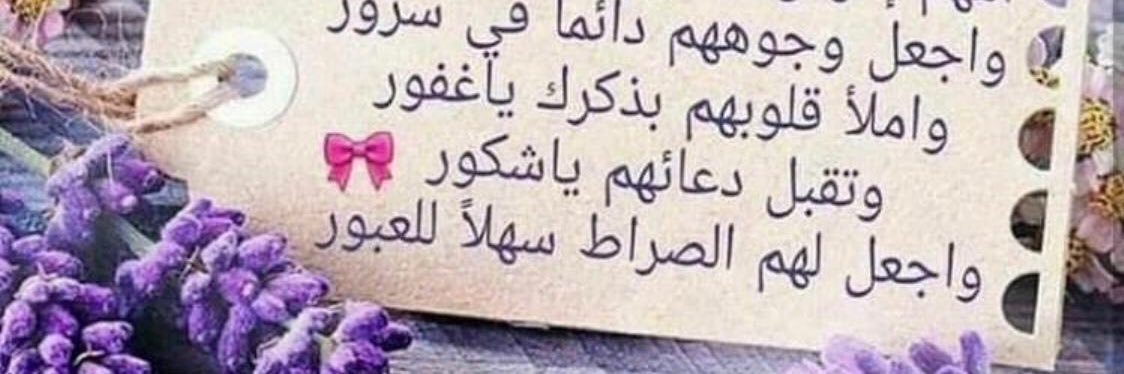 واجعل وجوههم دائما في سرور
واملأ قلوبهم بذكرك ياغفور
وتقبل دعائهم ياشكور
واجعل لهم الصراط سهلاً للعبور